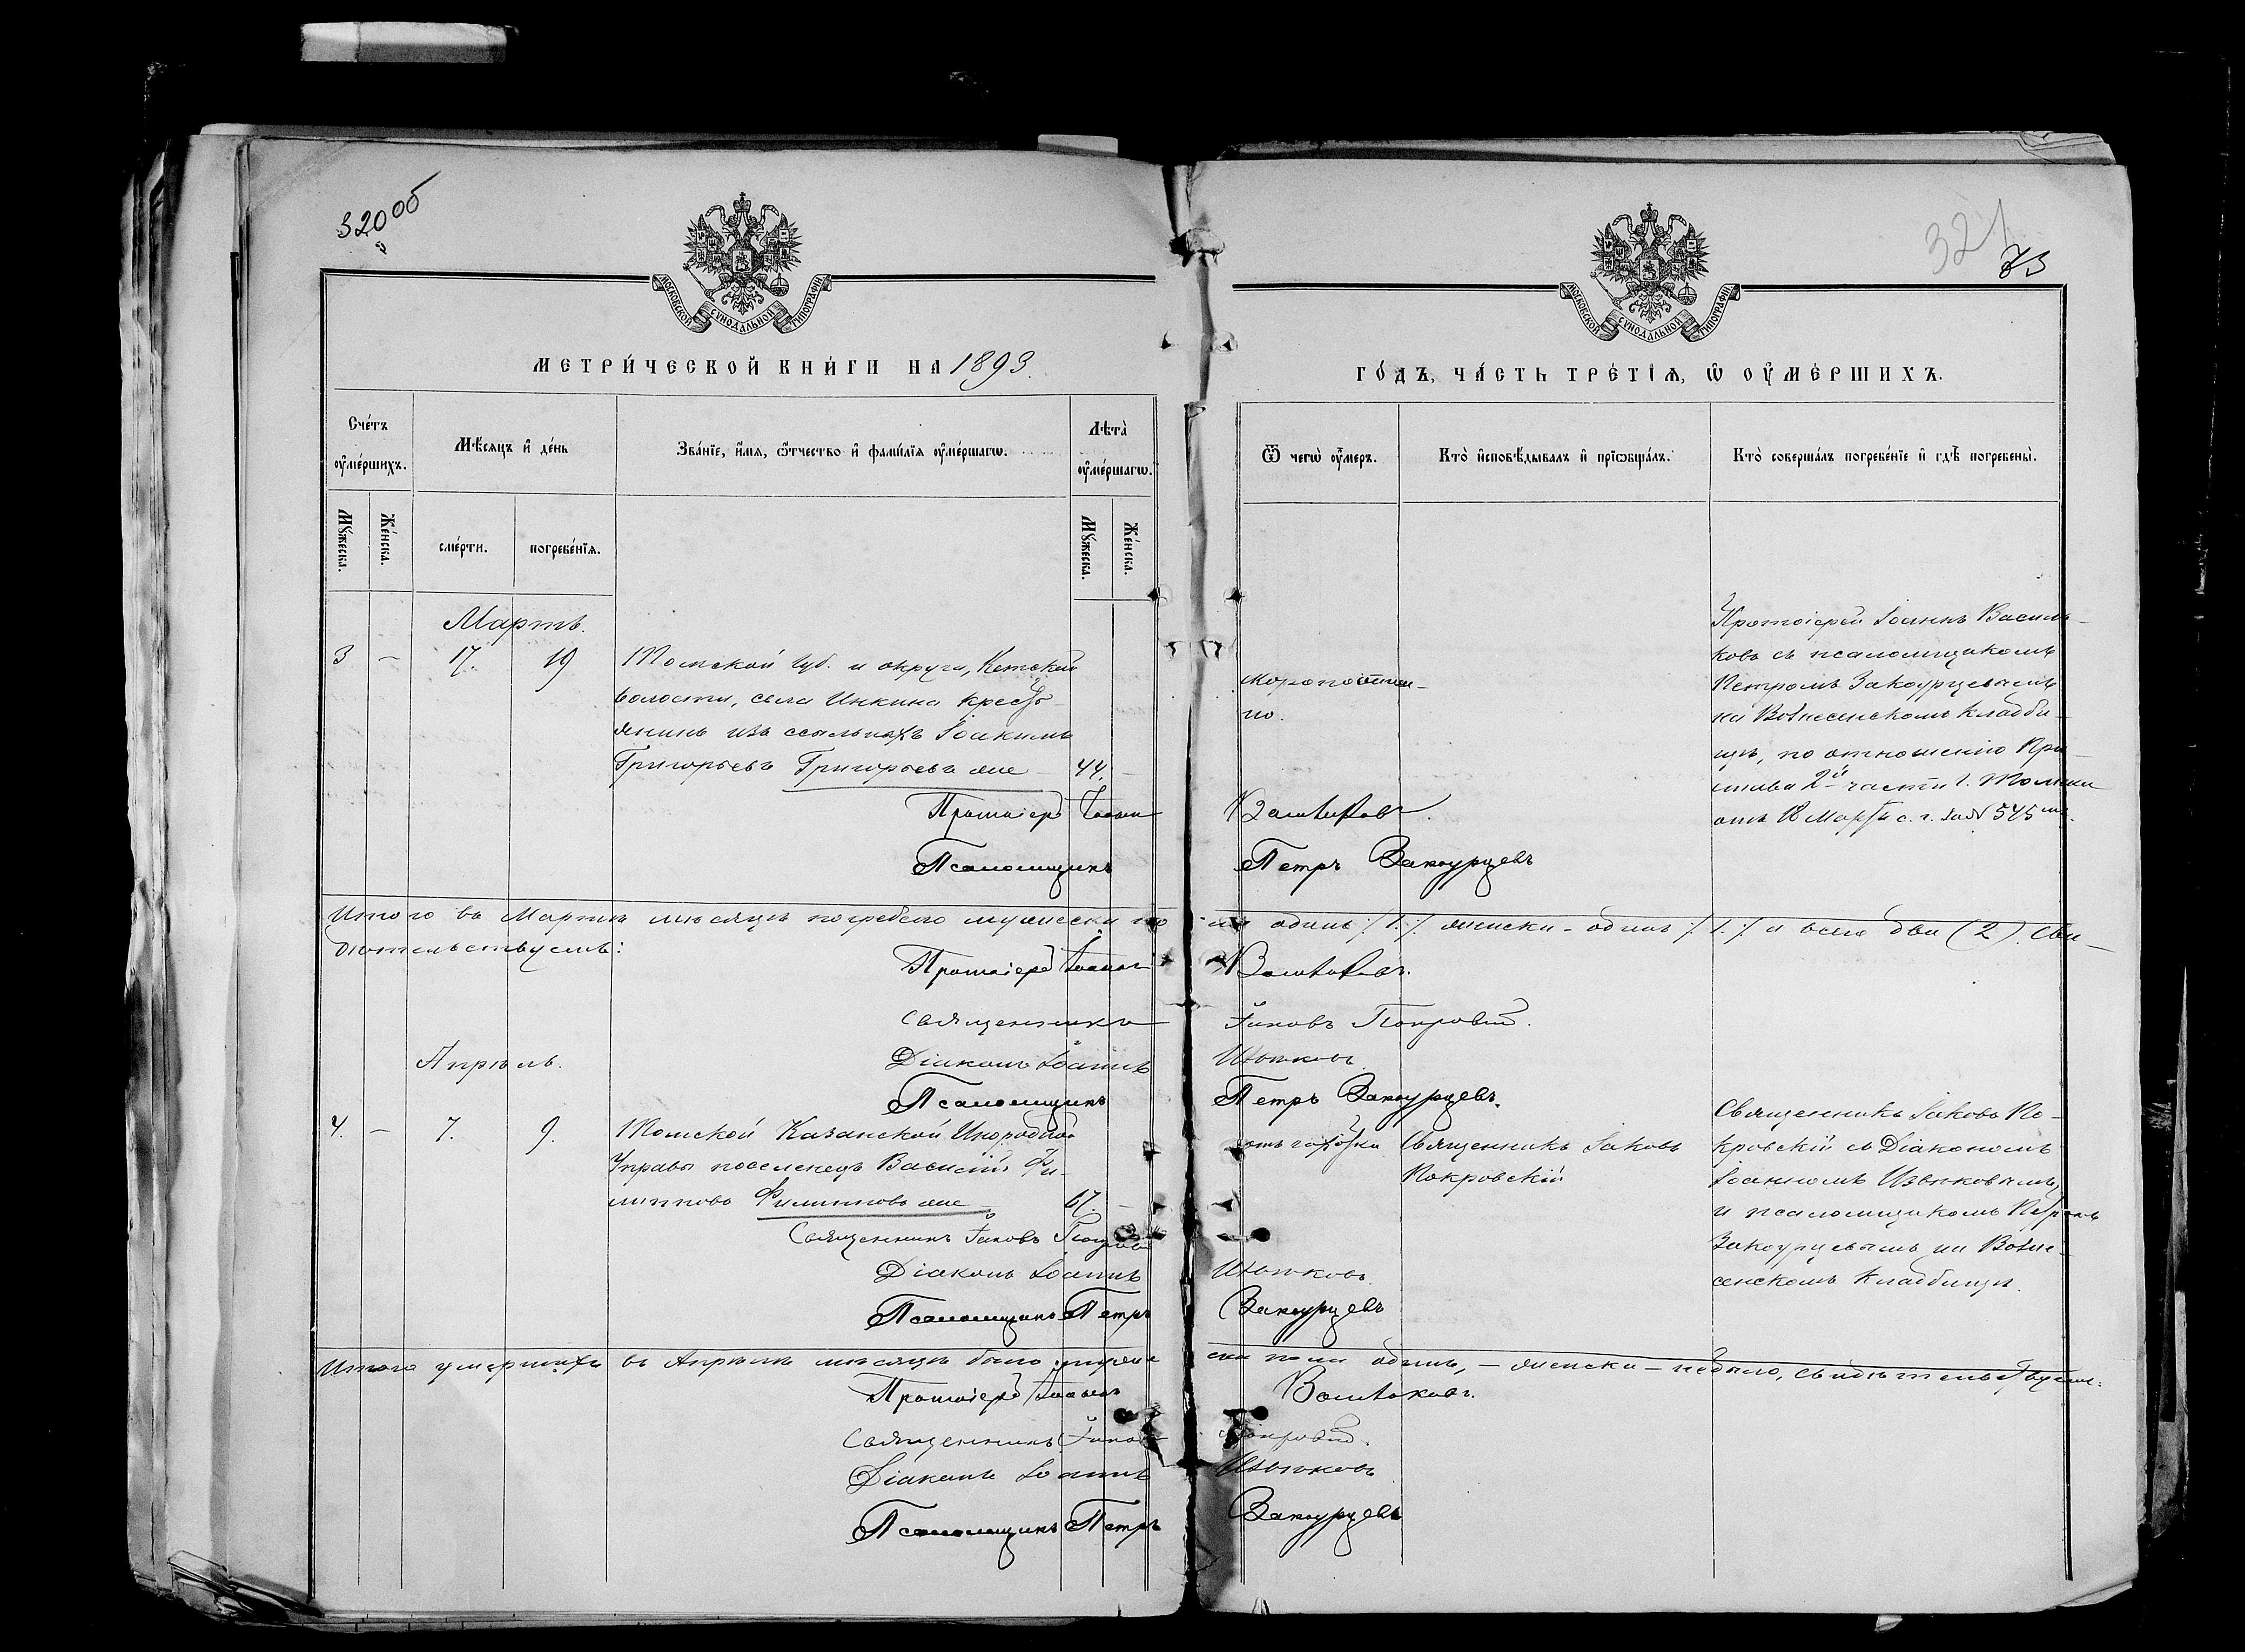 320 об
МОСКОВСКОЙ СѴНОДАЛЬНОЙ ТИПОГРАФІИ
МЕТРИ́ЧЕСКОЙ КНИ́ГИ НА 1893.
Сче́тъ ᲂу҆ме́ршихъ.
Мѣ́сяцъ и҆ де́нь
Зва́нїе, и҆́мя, ѻ҆́тчество и҆ фамѝлїя ᲂу҆ме́ршагѡ.
Лѣта̀ ᲂу҆ме́ршагѡ.
Мꙋ́жеска.
Же́нска.
сме́рти.
погребе́нїя.
Мꙋ́жеска.
Же́нска.
Мартъ.
3 – 17. 19 Томской губ. и округи, Кетской
волости, села Инкина кресть-
янинъ изъ ссыльныхъ Іоакимъ
Григорьевъ Григорьевъ же 44. –
Протоіерей Іоаннъ
Псаломщикъ
Итого въ Мартѣ мѣсяцѣ погребено мужеска по-
дѣтельствуемъ:
Протоіерей Іоаннъ
Священникъ
Апрѣль.
Діаконъ Іоаннъ
Псаломщикъ
4. – 7. 9. Томской Казанской Инородной
Управы поселенецъ Василій Фи-
липповъ Филипповъ же 67. –
Священникъ Іаковъ Покров
Діаконъ Іоаннъ
Псаломщикъ Петръ
Итого умершихъ въ Апрѣлѣ мѣсяцѣ было муже
Протоіерей Іоаннъ
Священникъ Іаковъ
Діаконъ Іоаннъ
Псаломщикъ Петръ
321
73
МОСКОВСКОЙ СѴНОДАЛЬНОЙ ТИПОГРАФІИ
ГО́ДЪ, ЧА́СТЬ ТРЕ́ТЇѦ, Ѡ҆ ОУ҆МЕ́РШИХЪ.
Ѿ чегѡ̀ ᲂу҆́меръ.
Кто̀ и҆сповѣ́дывалъ и҆ прїѡбща́лъ.
Кто̀ соверша́лъ погребе́нїе и҆ гдѣ̀ погребены̀.
Протоіерей Іоаннъ Василь-
ковъ съ псаломщикомъ
Петромъ Закоурцевымъ
на Вознесенскомъ кладби-
щѣ, по отношенію При-
става 2й части г. Томска
отъ 18 Марта с. г. за № 545 мъ.
Скоропостиж-
но.
Васильковъ.
Петръ Закоурцевъ
ла одинъ /1./. женска – одинъ /.1./ и всего два (2). Сви-
Васильковъ.
Іаковъ Покровскій.
Изѣтковъ.
Петръ Закоурцевъ.
отъ чахотки Священникъ Іаковъ
Покровскій
Священникъ Іаковъ По-
кровскій съ Діакономъ
Іоанномъ
и псаломщикомъ Петромъ
Закоурцевымъ на Возне-
сенскомъ кладбищѣ.
Закоурцевъ
ска пола одинъ, – женска – не было, свидѣтельствуемъ:
Васильковъ.
Покровскій.
Закоурцевъ